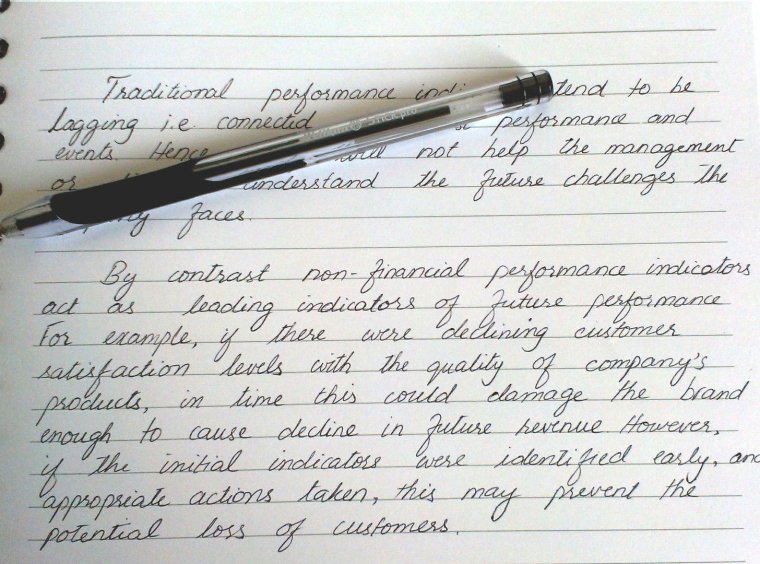 Traditional performance tend to be
lagging i.e. connected performance and
events. Hence not help the management
or understand the future challenges the
faces.
By contrast non-financial performance indicators
act as leading indicators of future performance
For example, if there were declining customer
satisfaction levels with the quality of company's
products, in time this could damage the brand
enough to cause decline in future revenue. However,
if the initial indicators were identified early, and
appropriate actions taken, this may prevent the
potential loss of customers.